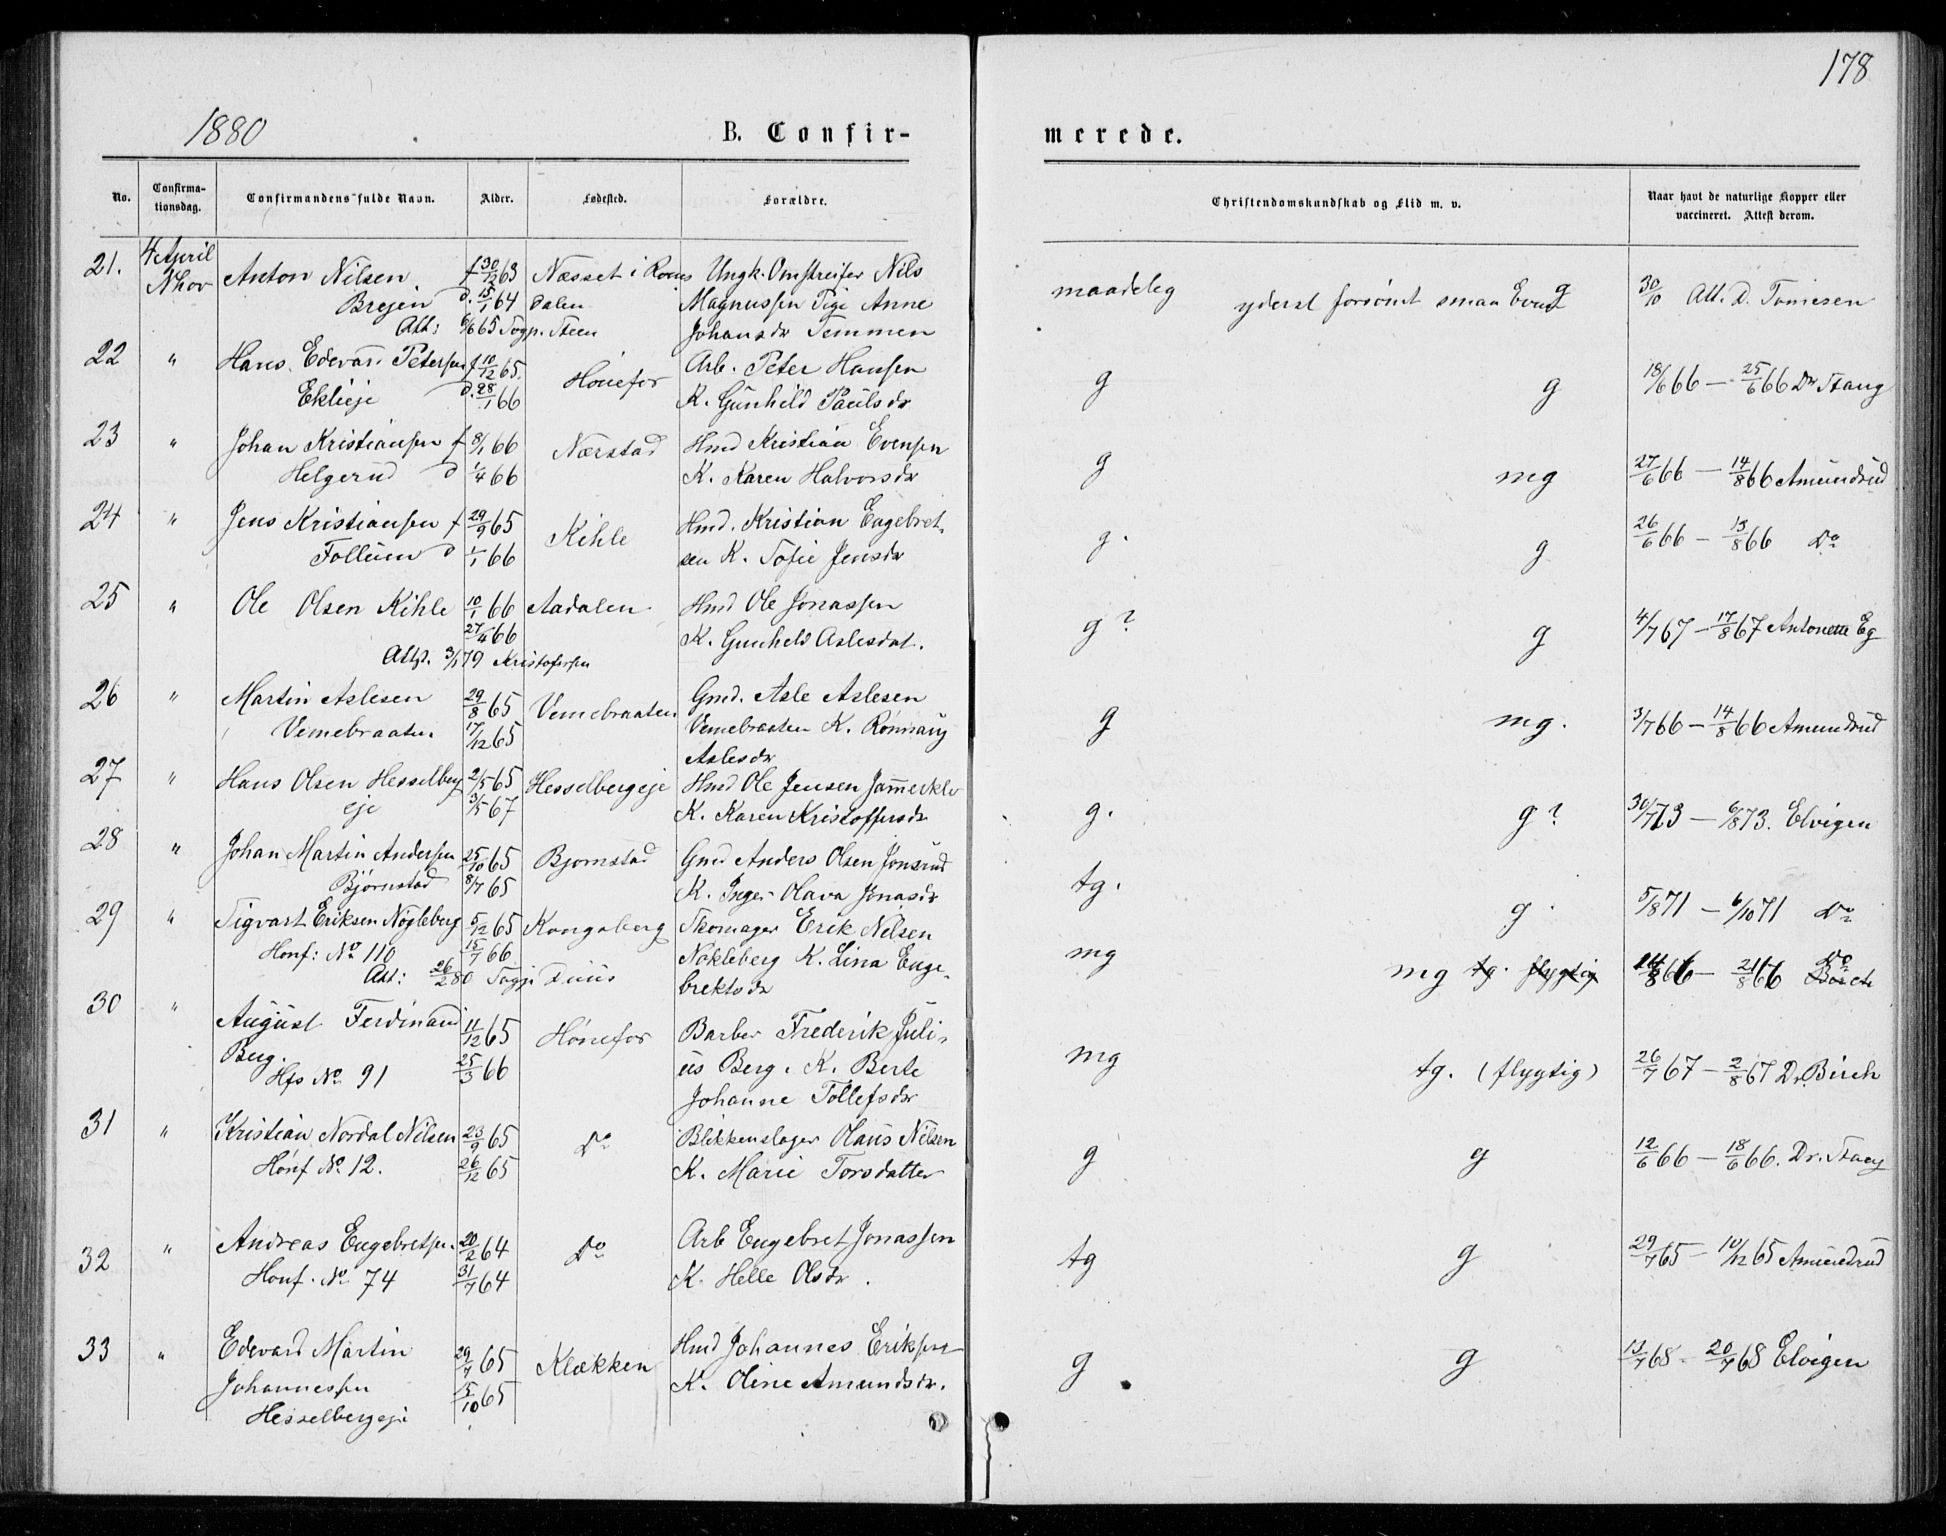 178
1880
B. Confir-
merede.
No.
Confirma-
tionsdag.
Confirmandens fulde Navn.
Alder.
Fødested.
Forældre.
Christendomskundskab og Flid m. v.
Naar havt de naturlige Kopper eller
vaccineret. Attest derom.
21. 4 April Anton Nilsen f 30/12 63 Næsset i Roms Ungk. Omstreifer Nils
Nhov Brejen d. 15/1 64 dalen Magnussen Anne
Att: 6/6 65 Sogp. Steen Johansdr Temmen
maadelig yderst forsømt smaa Evner g 30/10 Att. D. Tomesen
22 " Hans Edevard Petersen f 10/12 65. Hønefos Arb. Peter Hansen
Ekleje d. 28/1 66 K. Gunhild Paulsdr
g g 18/6 66 — 25/6 66 Dr Stang
23 " Johan Kristiansen f 8/1 66 Nærstad Hmd Kristian Evensen
Helgerud d 1/4 66 K. Karen Halvorsdr
g mg 27/6 66 — 14/8 66 Amundrud
24 " Jens Kristiansen f 29/9 65 Kihle Hmd. Kristian Engebret-
Follum d 1/1 66 sen K. Sofie Jensdr
g. g 26/6 66 — 13/8 66 Do
25 " Ole Olsen Kihle 10/1 66 Aadalen Hmd Ole Jonassen
27/4 66 K. Gunhild Aslesdat.
Att. 3/1 79 Kristofersen
g? g 4/7 67 — 17/8 67 Antonette Eg
26 " Martin Aslesen 29/8 65 Vemebraaten Gmd. Asle Aslesen
Vemebraaten 17/12 65 Vemebraaten K. Rønnaug
Aslesdr
g mg. 3/7 66 — 14/8 66 Amundrud
27 " Hans Olsen Hesselberg 2/5 65 Hesselbergeje Hmd Ole Jensen Jammerkle
eje 3/5 67 K. Karen Kristoffersdr
g. g? 30/7 73 — 6/8 73. Elvigen
28 " Johan Martin Andersen 25/10 65 Bjørnstad Gmd Anders Olsen Jonsrud
Bjørnstad 8/7 65 K. Inger Olava Jonasdr
tg. g 5/8 71 — 6/10 71 Do
29 " Sigvart Eriksen Nøgleberg 5/12 65 Kongsberg Skomager Erik Nilsen
Honf: No 110 15/7 66 Nøkleberg K. Lina Enge-
Att: 26/2 80 Sogp brektsdr
mg mg tg. flygtig 14/8 66 — 21/8 66 Do
30 " August Ferdinand 11/12 65 Hønefos Barber Frederik Juli-
Berg. 25/3 66 us Berg. K. Berte
Hfs No 91 Johanne Tollefsdr
mg tg. (flygtig) 26/7 67 — 2/8 67 Dr. Birch
31 " Kristian Nordal Nilsen 23/9 65 Do Blikkenslager Olaus Nilsen
Hønf No. 12. 26/12 65 K. Marie Torsdatter
g g 12/6 66 — 18/6 66. Dr. Stang
32 " Andreas Engebretsen. 20/2 64 Do Arb Engebret Jonassen
Honf. No 74 31/7 64 K. Helle Olsdr.
tg g 29/7 65 — 10/12 65 Amundrud
33 " Edevard Martin 29/7 65 Klækken Hmd Johannes Eriksen
Johannessen 15/10 65 K. Oline Amundsdr.
Hesselbergeje
g g 13/7 68 — 20/7 68 Elvigen